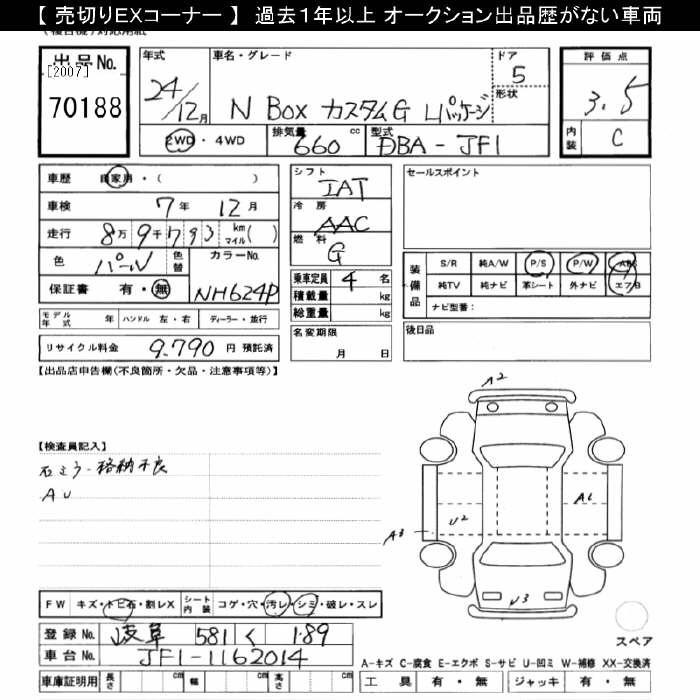 【 売切りEXコーナー 】 過去1年以上 オークション出品歴がない車両
出品No. 年式 車名・グレード ドア 評価点
[2007]
70188 24/12月 N Box カスタムG Lパッケージ 5 3.5
形状
2WD・4WD 排気量 660 cc 型式 DBA-JF1 内装 C
車歴 自家用・( ) シフト IAT セールスポイント
車検 7年 12月 冷房 AAC
走行 8万9千793 km マイル( ) 燃料 G
色 パール 色替 カラーNo. NH624P
保証書 有・無
乗車定員 4 名
積載量 kg
総重量 kg
装備品 S/R 純A/W P/S P/W ABS
純TV 純ナビ 革シート 外ナビ エアB
ナビ型番:
モデル年式 年 ハンドル 左・右 ディーラー・並行 名変期限 月 日 後日品
リサイクル料金 9,790 円 預託済
【出品店申告欄(不良箇所・欠品・注意事項等)】
A2
【検査員記入】
右ミラー格納不良
AU
A1
U2
A3
U3
FW キズ・トビ石・割レX シート内装 コゲ・穴・汚レ・シミ・破レ・スレ
登録No. 岐阜 581 く 1-89
スペア
車台No. JF1-1162014
A-キズ C-腐食 E-エクボ S-サビ U-凹ミ W-補修 XX-交換済
車庫証明用 長さ cm 幅 cm 高さ cm 工具 有・無 ジャッキ 有・無